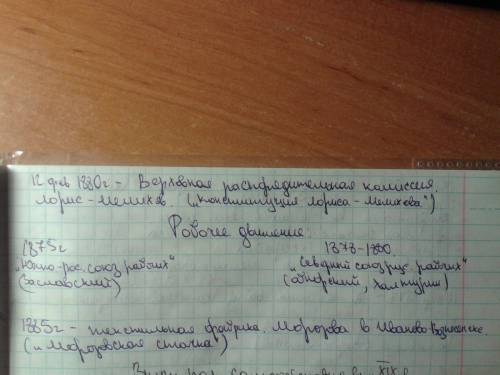 12 фев 1880г - Верховная распорядительная комиссия.
Лорис-Мелихов. ("Конституция Лориса-Мелихова")
Рабочее движение.
1875г 1878-1880
"Южно-рос. союз рабочих" "Северный союз рус. рабочих"
(Заславский) (Обнорский, Халтурин)
1885г - текстильная фабрика Морозова в Иваново-Вознесенске.
("Морозовская стачка")
XIX в